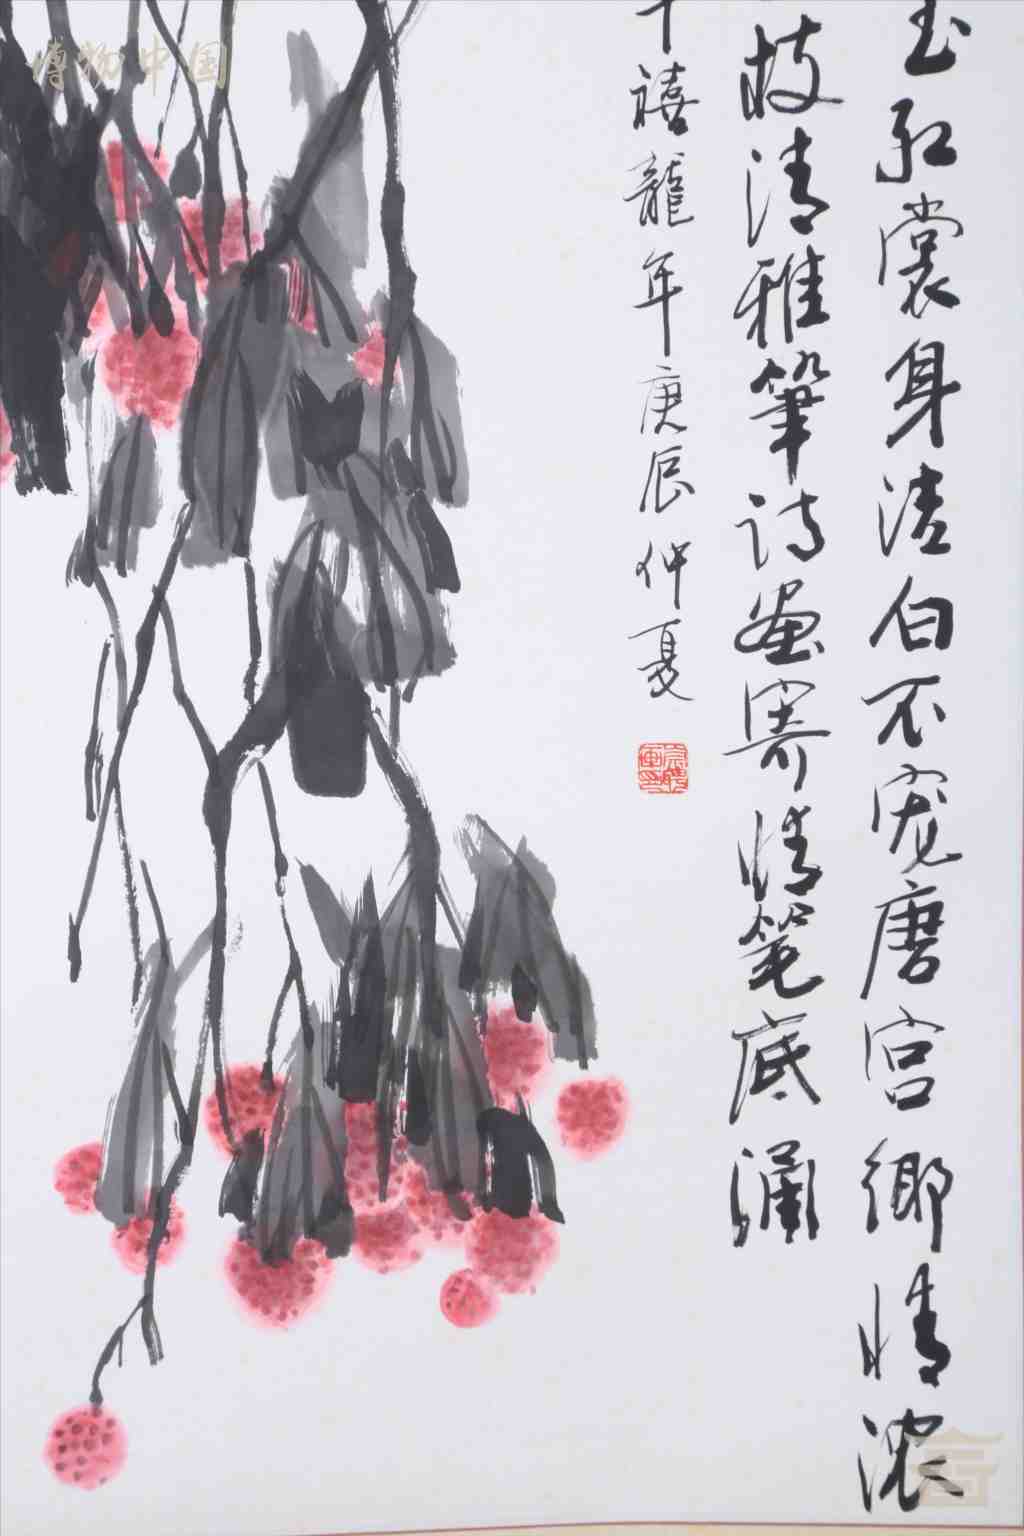 玉红裳身清白不宠唐宫乡情浓
枝清雅筆诗画寄情笔底涌
千禧龍年庚辰仲夏
博物中国